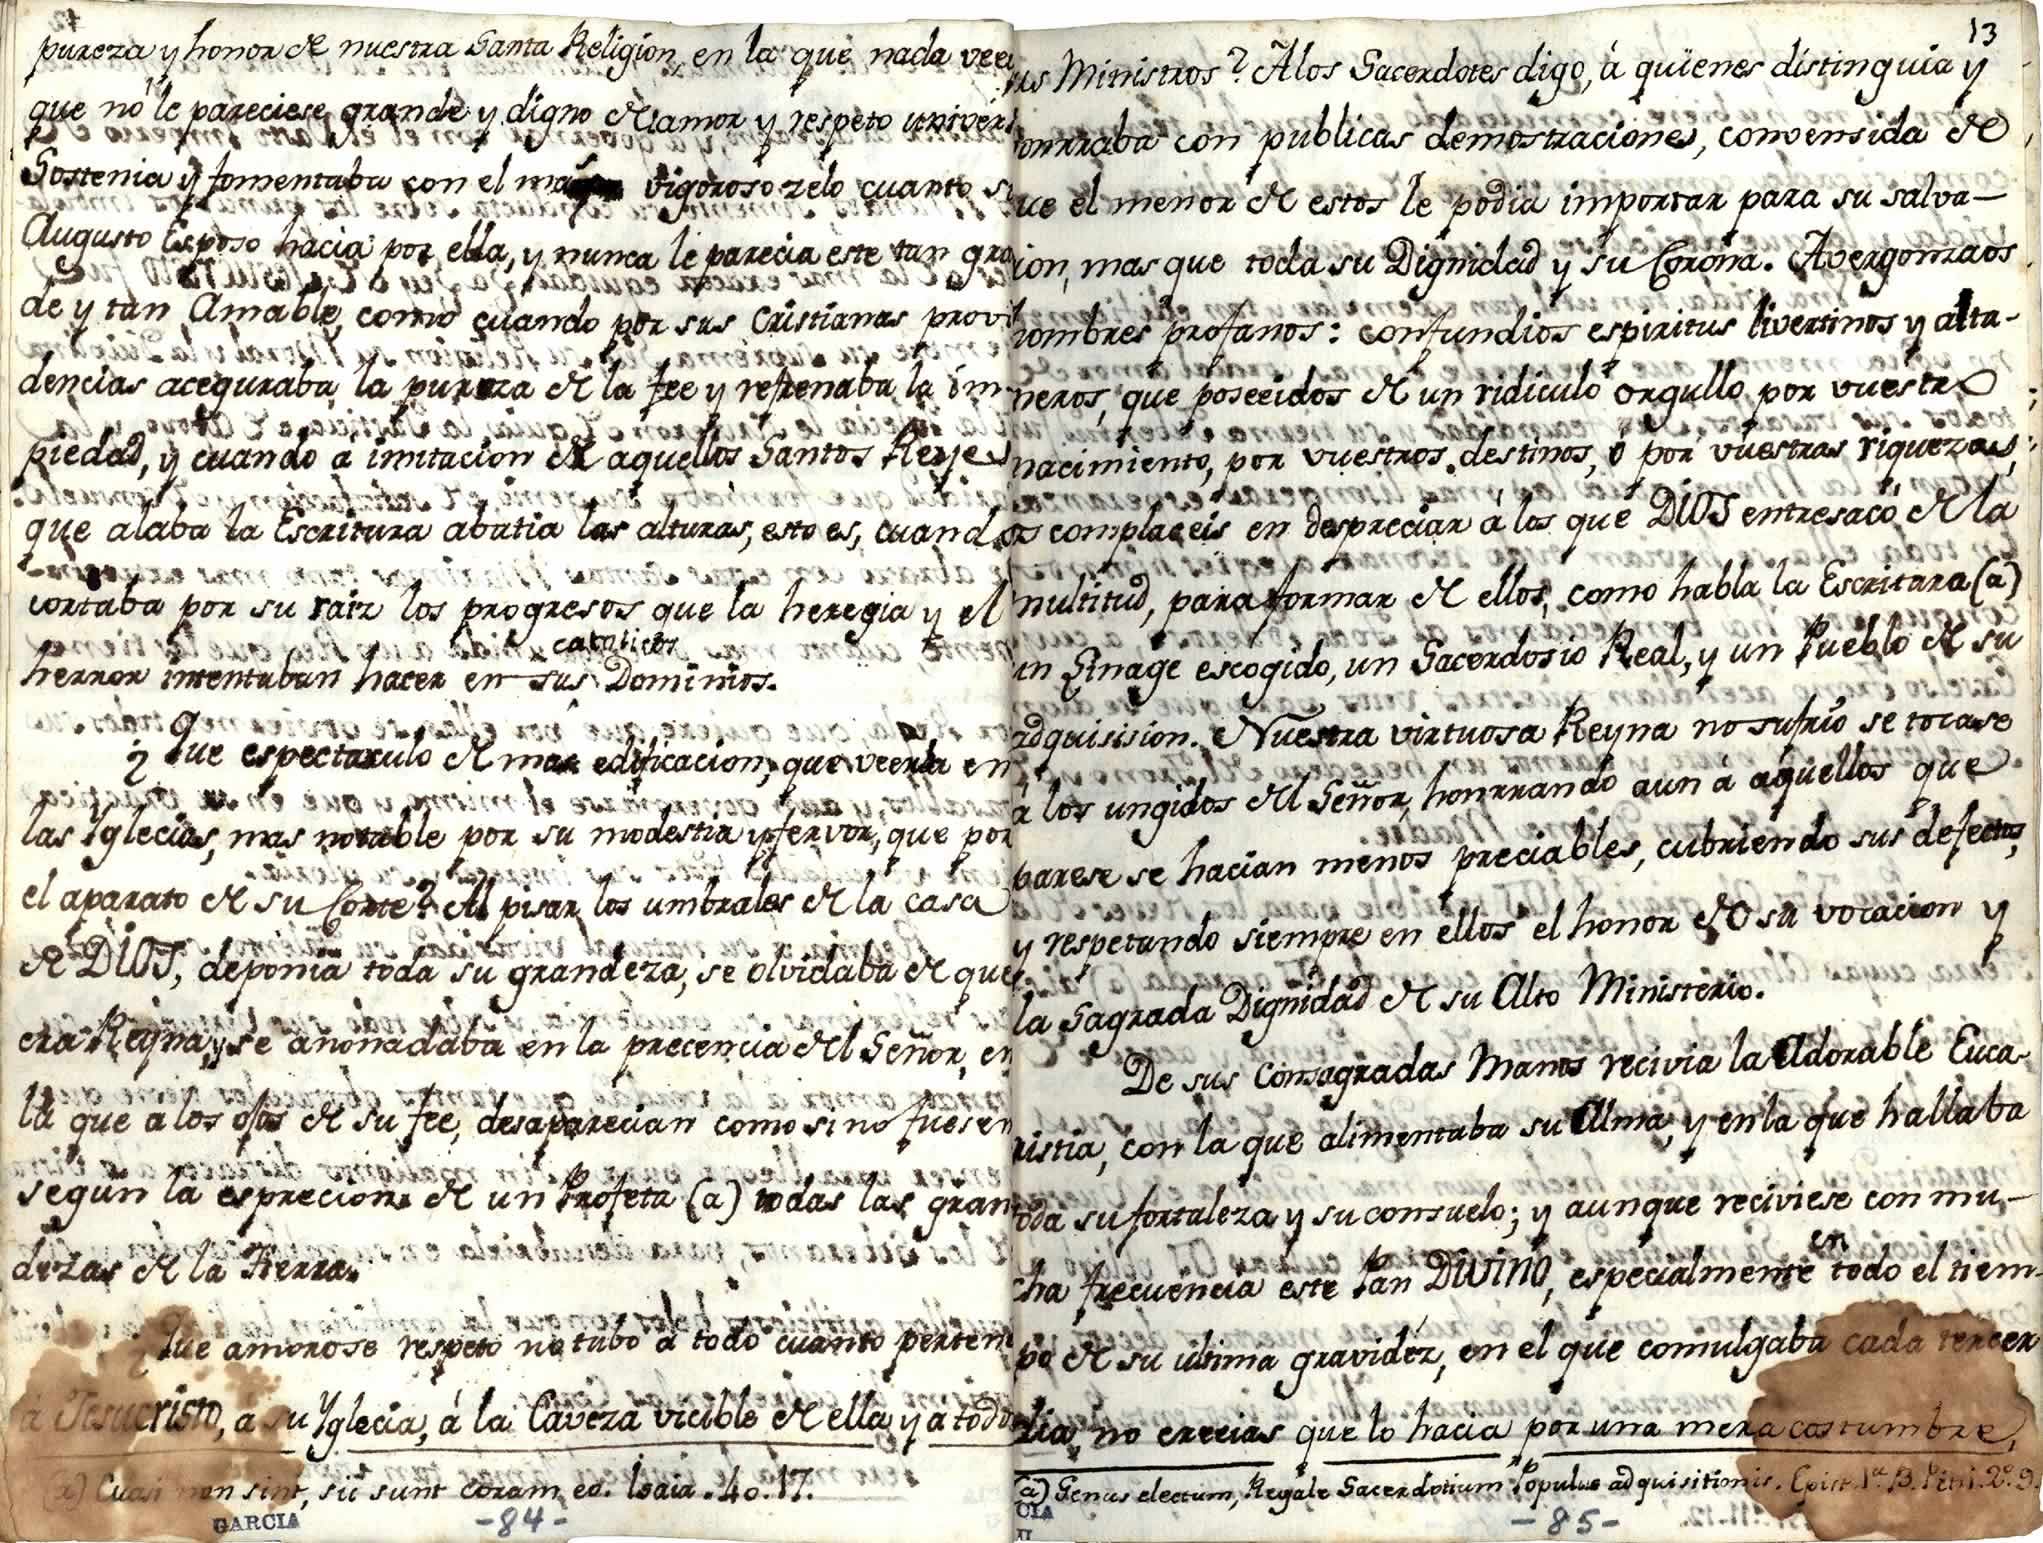 pureza y honor de nuestra Santa Religion, en la que nada veei
que no le pareciese grande y digno del amor y respeto univers
Sostenia y fomentaba con el mas vigoroso zelo cuanto su
Augusto Esposo hacia por ella, y nunca le parecia este tan gra
de y tan Amable, como cuando por sus Cristianas provi
dencias aceguraba la pureza de la fee y refrenaba la im
piedad, y cuando á imitacion de aquellos Santos Reyes
que alaba la Escritura abatia las alturas, esto es, cuando
cortaba por su raiz los progresos que la heregia y el
catolicos
herror intentaban hacer en sus Dominios.
¿Que espectaculo de mas edificacion, que veerla en
las Yglecias, mas notable por su modestia y fervor, que por
el aparato de su Corte? Al pisar los umbrales de la casa
de DIOS, deponia toda su grandeza, se olvidaba de que
era Reyna, y se anonadaba en la precencia del Señor, en
la que a los ojos de su fee, desaparecian como si no fuesen
segun la esprecion de un Profeta (a) todas las gran
dezas de la Tierra.
¿Que amoroso respeto no tubo a todo cuanto perten
á Jesucristo, á su Yglecia, á la Caveza vicible de ella y a todo
(a) Cuasi non sint, sic sunt coram eo. Isaia. 40. 17.
GARCIA
-84-
13
us Ministros? Á los Sacerdotes digo, á quienes distinguia y
onrraba con publicas demostraciones, convensida de
ue el menor de estos le podia importar para su salva-
ion, mas que toda su Dignidad y su Corona. Avergonzaos
hombres profanos: confundios espiritus livertinos y alta-
neros, que poseeidos de un ridiculo orgullo por vuestro
nacimiento, por vuestros destinos, ó por vuestras riquezas,
os complaceis en despreciar á los que DIOS entresacó de la
multitud, para formar de ellos, como habla la Escritura (a)
un Linage escogido, un Sacerdosio Real, y un Pueblo de su
adquisision. Nuestra virtuosa Reyna no sufrió se tocase
á los ungidos del Señor, honrrando aun á aquellos que
parese se hacian menos preciables, cubriendo sus defectos,
y respetando siempre en ellos el honor de su vocacion y
la Sagrada Dignidad de su Alto Ministerio.
De sus Consagradas Manos recivia la Adorable Euca-
ristia, con la que alimentaba su Alma, y en la que hallaba
toda su fortaleza y su consuelo; y aunque reciviese con mu-
en
cha frecuencia este Pan DIVINO, especialmente todo el tiem-
po de su ultima gravidéz, en el que comulgaba cada tercer
dia, no creeias que lo hacia por una mera costumbre,
(a) Genus electum, Regale Sacerdotium Populus adquisitionis. Epist. 1ª B. Petri. 2º. 9.
CIA
II
-85-